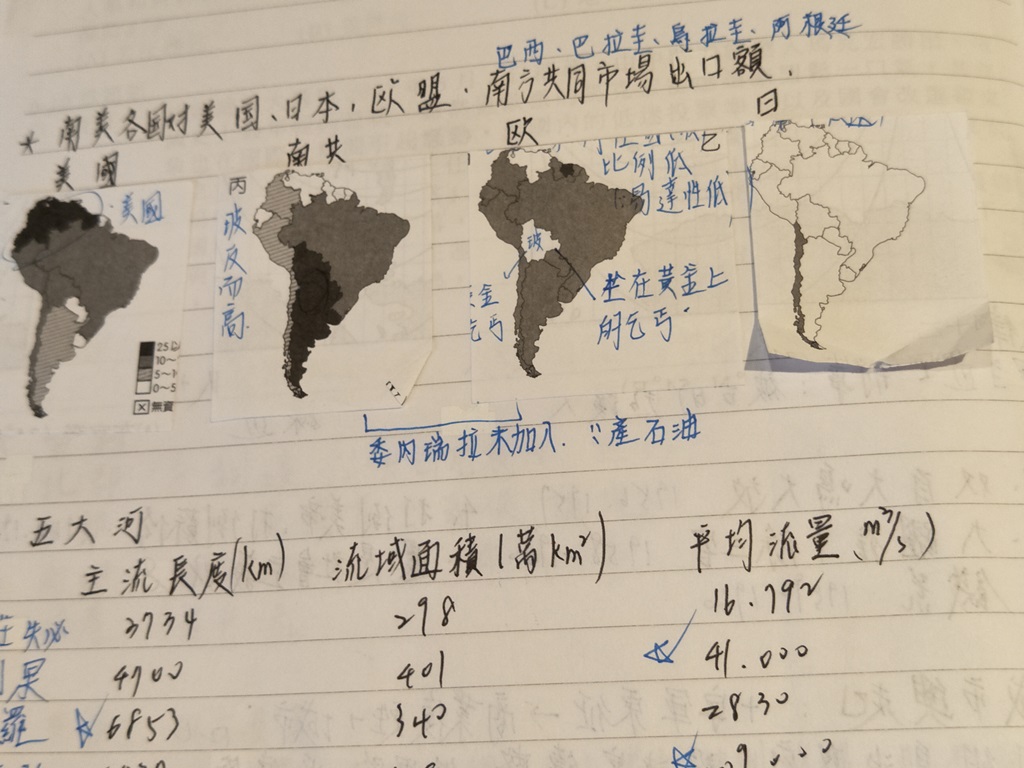 巴西、巴拉圭、烏拉圭、阿根廷
* 南美各国対美国、日本、欧盟、南方共同市場出口額.
美國 南共 欧 日
美國
丙
玻
反
而
高
25以
10~
5~1
0~5
X 無資
比例低
易達性低
玻
金
乞丐
坐在黃金上
的乞丐
委內瑞拉未加入 ∵產石油
五大河
主流長度(km) 流域面積(萬km²) 平均流量(m³/s)
3734 298 16.792
果 4700 401 41.000
羅 6853 340 2830
9.000